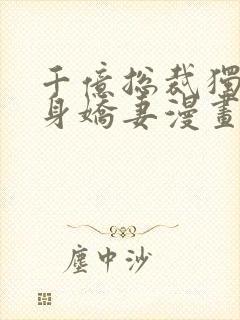 千億総裁獨
身嬌妻漫畫
塵中沙